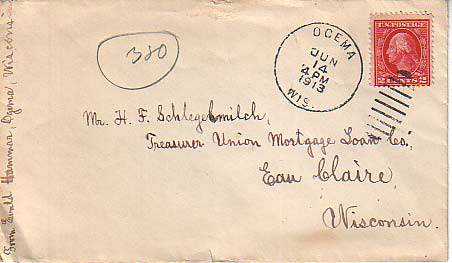 From Ewald Hammar, Ogema, Wisconsin
380
OGEMA
JUN
14
4 PM
1913
WIS.
U.S. POSTAGE
2 CENTS 2
Mr. H. F. Schlegelmilch,
Treasurer Union Mortgage Loan Co.,
Eau Claire,
Wisconsin.